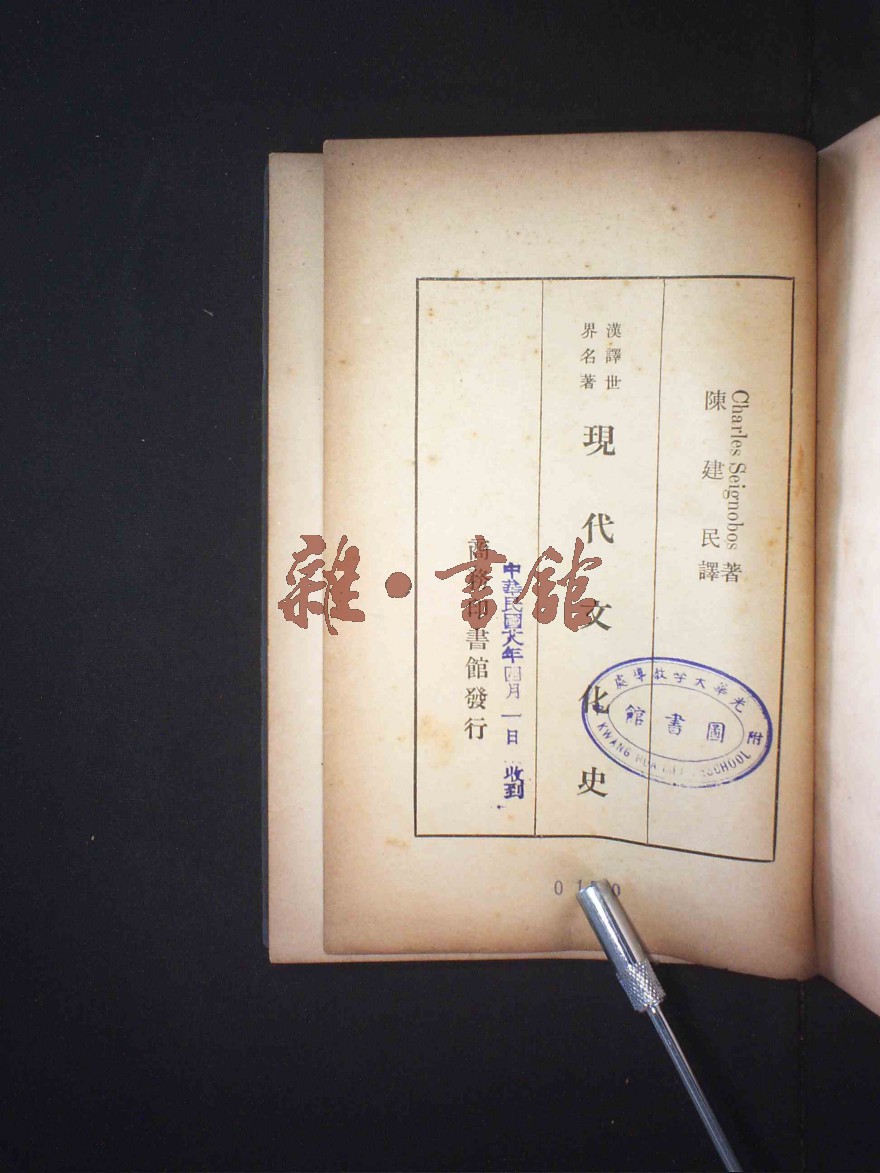 Charles Seignobos 著
陳建民譯
漢譯世
界名著
現代文化史
商務印書館發行
中華民國廿八年四月一日收到
光華大學教導處
附
圖書館
KWANG HUA SCHOOL
雜·書館